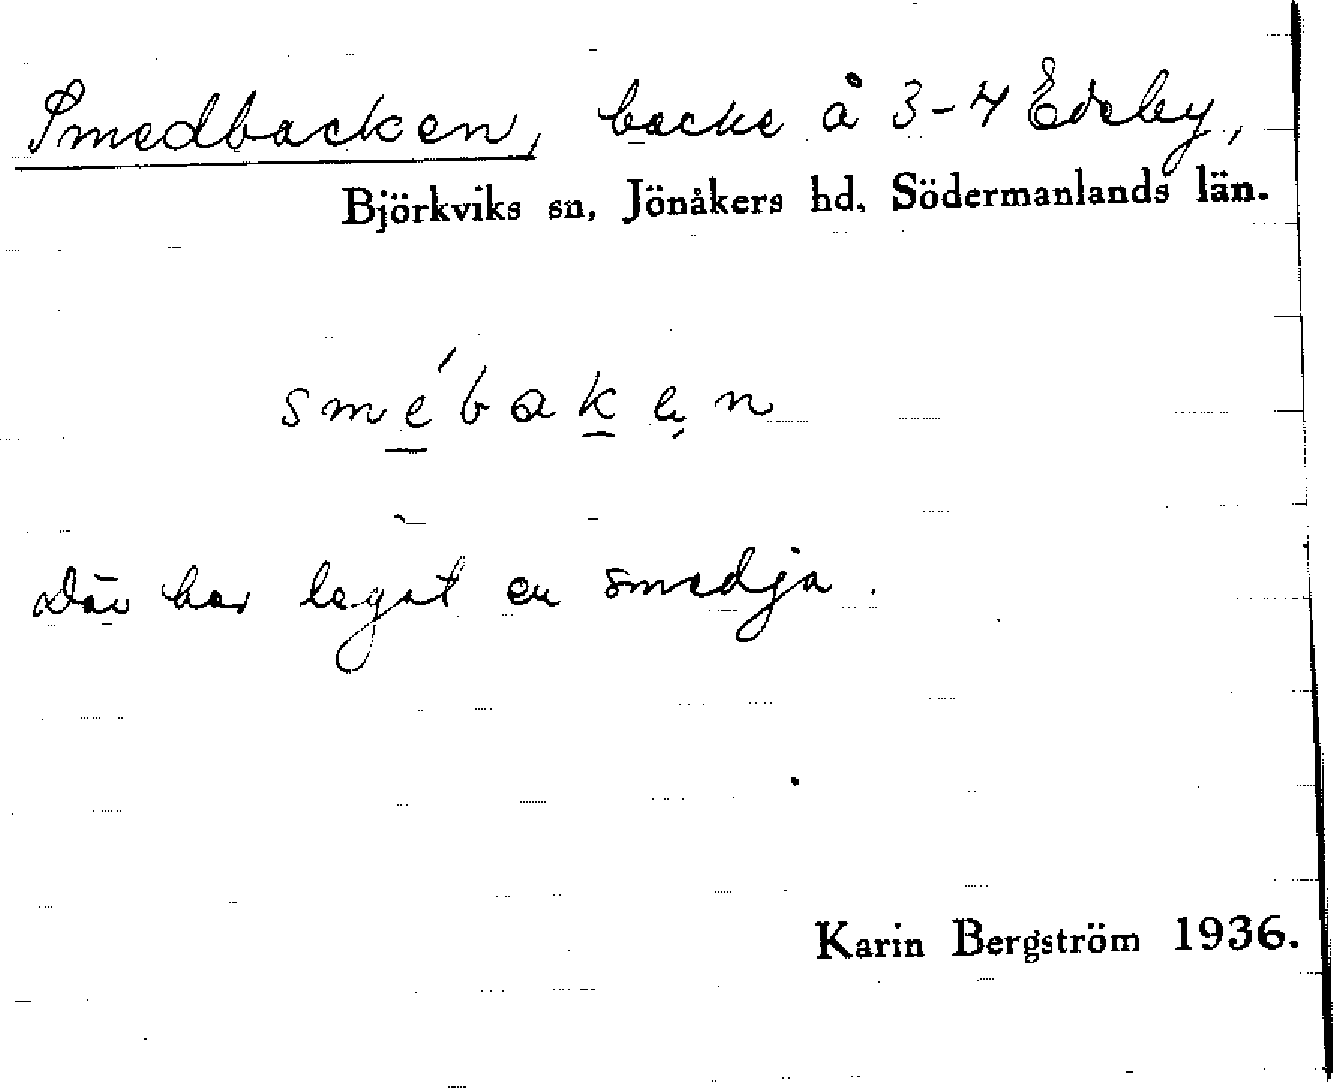 Smedbacken, backe å 3-4 Edeby,
Björkviks sn, Jönåkers hd, Södermanlands län.
smé́baken
Där har legat en smedja.
Karin Bergström 1936.